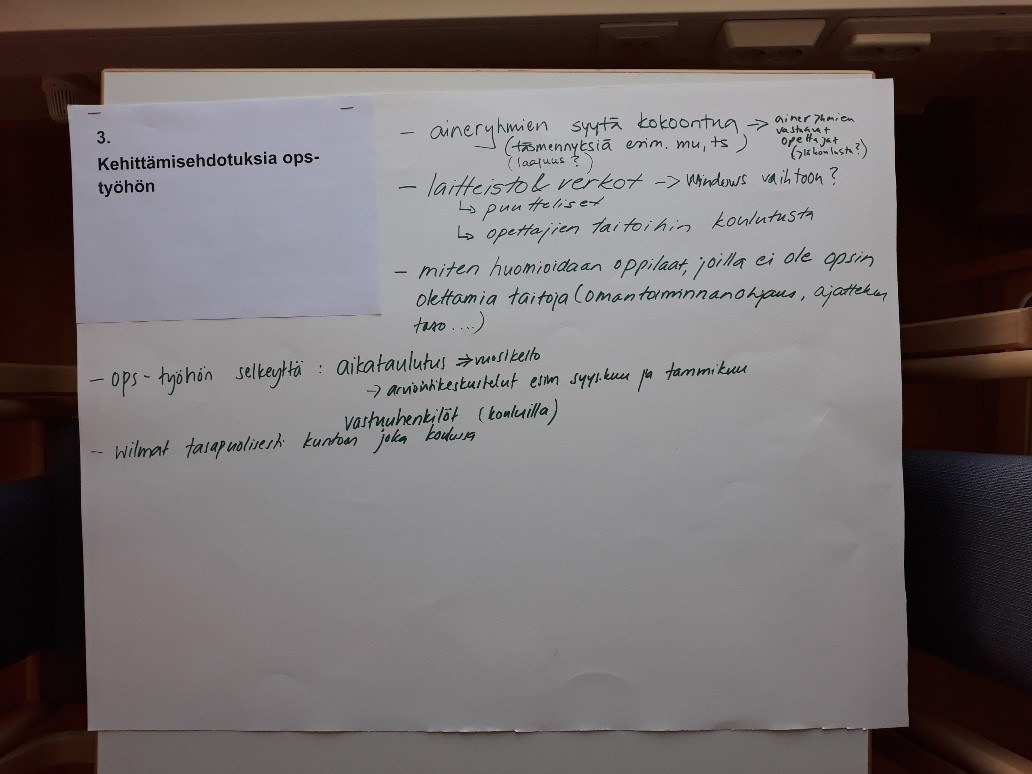 3.
Kehittämisehdotuksia ops-
työhön
- aineryhmien syytä kokoontua → aineryhmien
vastaavat
opettajat
(yläkoulusta?)
(täsmennyksiä esim. mu, ts)
(laajuus?)
- laitteisto & verkot → Windows vaihtoon?
↳ puutteliset
↳ opettajien taitoihin koulutusta
- miten huomioidaan oppilaat, joilla ei ole opsin
olettamia taitoja (omantoiminnanohjaus, ajattelun
taso....)
- ops-työhön selkeyttä : aikataulutus ⇒ vuosikello
→ arviointikeskustelut esim syyskuu ja tammikuu
vastuuhenkilöt (kouluilla)
- Wilmat tasapuolisesti kuntoon joka koulussa